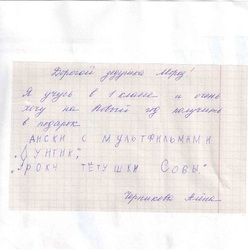 Дорогой дедушка Мороз!
Я учусь в 1 классе и очень
хочу на Новый год получить
в подарок
ДИСКИ С МУЛЬТФИЛЬМАМИ
„ЛУНТИК",
„УРОКИ ТЁТУШКИ СОВЫ."
Черникова Алёна